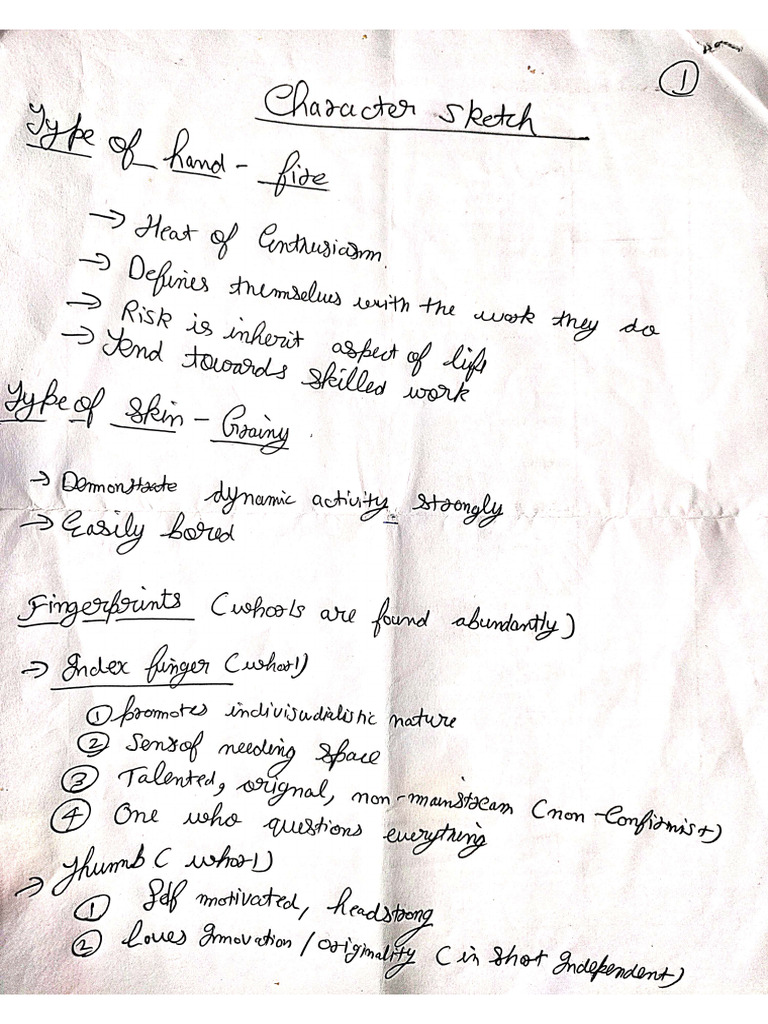 ①
Character sketch
Type of hand - fire
→ Heat of Enthusiasm.
→ Defines themselves with the work they do
→ Risk is inherit aspect of life
→ Tend towards skilled work
Type of skin - Grainy.
→ Demonstrate dynamic activity strongly
→ Easily bored
Fingerprints (whorls are found abundantly)
→ Index finger (whorl)
① promotes indivisudialistic nature
② Sensof needing space
③ Talented, orignal, non-mainstream (non-Confirmist)
④ One who questions everything
→ Thumb (whorl)
① Self motivated, headstrong
② Loves Innovation / originality (in short Independent)